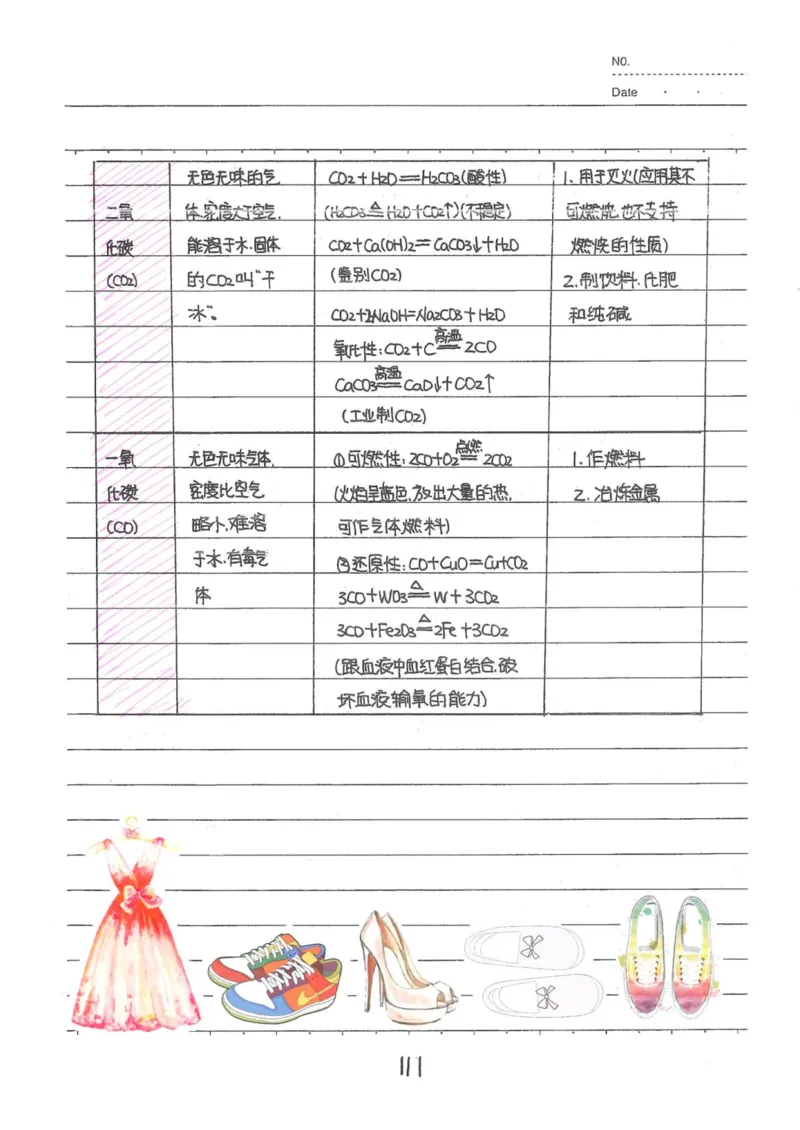 NO.
Date
二氧
化碳
(CO2)
无色无味的气
体,密度大于空气,
能溶于水.固体
的CO2叫"干
冰"。
CO2+H2O=H2CO3(酸性)
(H2CO3≙H2O+CO2↑)(不稳定)
CO2+Ca(OH)2=CaCO3↓+H2O
(鉴别CO2)
CO2+2NaOH=Na2CO3+H2O
氧化性:CO2+C 高温= 2CO
CaCO3 高温= CaO↓+CO2↑
(工业制CO2)
1、用于灭火(应用其不
可燃烧,也不支持
燃烧的性质)
2.制饮料.化肥
和纯碱
一氧
化碳
(CO)
无色无味气体,
密度比空气
略小,难溶
于水,有毒气
体
①可燃性:2CO+O2 点燃= 2CO2
(火焰呈蓝色,放出大量的热,
可作气体燃料)
②还原性:CO+CuO=Cu+CO2
3CO+WO3 △= W+3CO2
3CO+Fe2O3 △= 2Fe+3CO2
(跟血液中血红蛋白结合,破
坏血液输氧的能力)
1.作燃料
2.冶炼金属
111